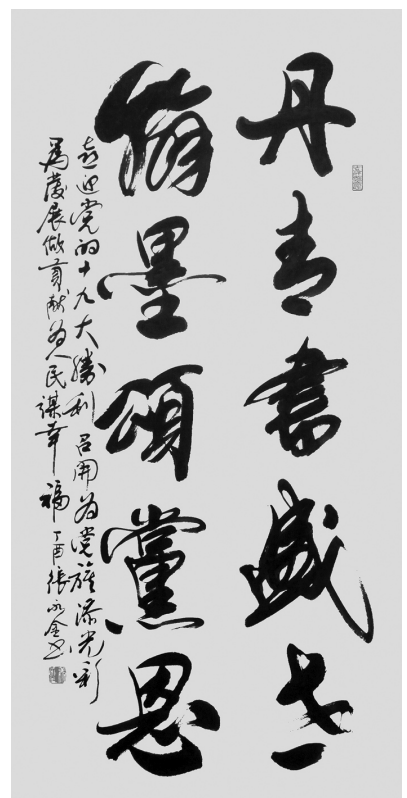 丹青書盛世
翰墨頌黨恩
喜迎党的十九大勝利召開为党旗添光彩
爲發展做貢献为人民謀幸福 丁酉 張永金书